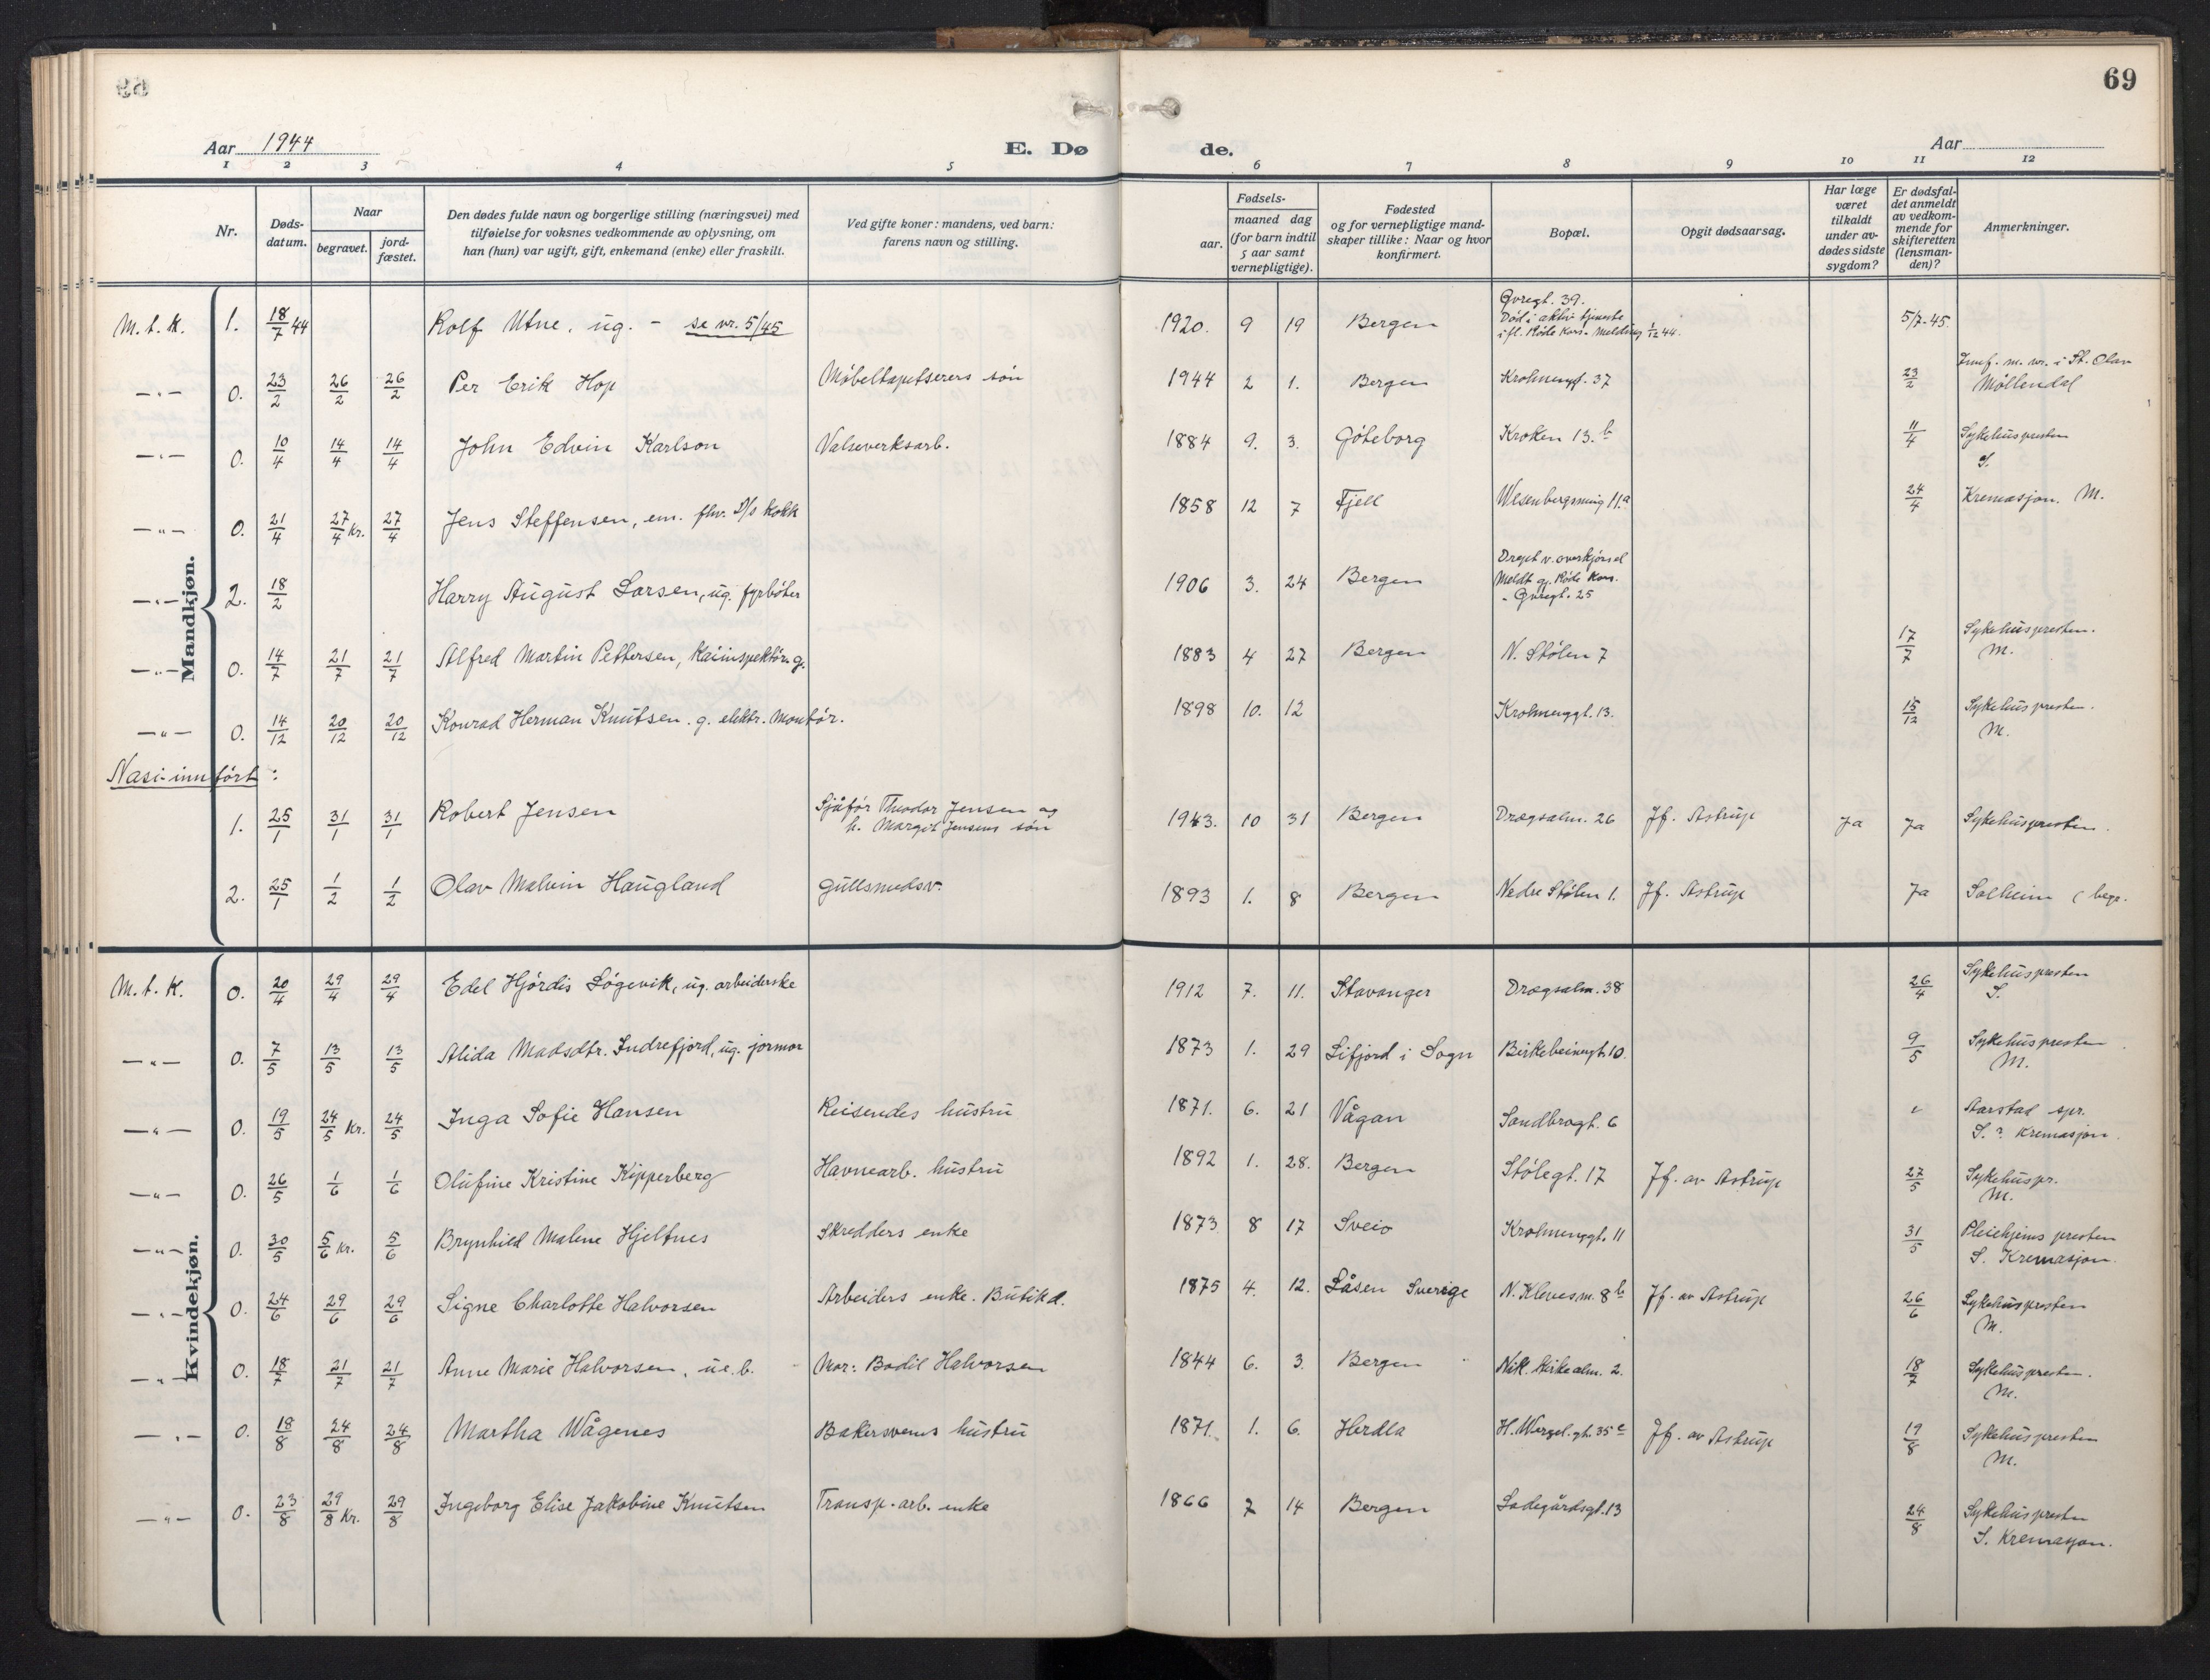 69
Aar 1944
E. Dø
de.
Aar
1 2 3 4 5 6 7 8 9 10 11 12
Nr.
Døds-
datum.
Naar
begravet.
jord-
fæstet.
Den dødes fulde navn og borgerlige stilling (næringsvei) med
tilføielse for voksnes vedkommende av oplysning, om
han (hun) var ugift, gift, enkemand (enke) eller fraskilt.
Ved gifte koner: mandens, ved barn:
farens navn og stilling.
Fødsels-
aar.
maaned dag
(for barn indtil
5 aar samt
vernepligtige).
Fødested
og for vernepligtige mand-
skaper tillike: Naar og hvor
konfirmert.
Bopæl.
Opgit dødsaarsag.
Har læge
været
tilkaldt
under av-
dødes sidste
sygdom?
Er dødsfal-
det anmeldt
av vedkom-
mende for
skifteretten
(lensman-
den)?
Anmerkninger.
Mandkjøn.
M. t. K. 1. 18/7 44 Rolf Utne, ug. - se nr. 5/45 1920. 9 19 Bergen Øvregt. 39.
Død i aktiv tjeneste
ifl. Røde Kors. Melding 1/12 44. 5/7-45.
— " — 0. 23/2 26/2 26/2 Per Erik Hop Møbeltapetserers søn 1944 2 1. Bergen Krohnengt. 37 23/2 Innf. m. nr. i St. Olav
Møllendal
— " — 0. 10/4 14/4 14/4 John Edvin Karlson Valseverksarb. 1884 9. 3. Gøteborg Kroken 13. b 11/4 Sykehuspresten
S.
— " — 0. 21/4 27/4 Kr. 27/4 Jens Steffensen, em. fhv. D/s kokk 1858 12 7 Fjell Wesenbergsmug 11.a 24/4 Kremasjon. M.
— " — 2. 18/2 Harry August Larsen, ug. fyrbøter 1906 3. 24 Bergen Drept v. overkjørsel
Meldt gj. Røde Kors.
- Øvregt. 25
— " — 0. 14/7 21/7 21/7 Alfred Martin Pettersen, Kaiinspektør g. 1883 4 27 Bergen N. Stølen 7 17/7 Sykehuspresten.
M.
— " — 0. 14/12 20/12 20/12 Konrad Herman Knutsen. g. elektr. Montør. 1898 10. 12 Krohnenggt. 13. 15/12 Sykehuspresten.
M.
Nasi-innført:
1. 25/1 31/1 31/1 Robert Jensen Sjåfør Theodor Jensen og
h. Margit Jensens søn 1943. 10 31 Bergen Dregsalm. 26 Jf. Astrup Ja Ja Sykehuspresten.
2. 25/1 1/2 1/2 Olav Malvin Haugland Gullsmedsv. 1893 1. 8 Bergen Nedre Stølen 1. Jf. Astrup Ja Solheim ( begr.
Kvindekjøn.
M. t. K. 0. 20/4 29/4 29/4 Edel Hjørdis Løgevik, ug. arbeiderske 1912 7. 11. Stavanger Dregsalm. 38 26/4 Sykehuspresten
S.
— " — 0. 7/5 13/5 13/5 Alida Madsdtr. Indrefjord, ug. jormor 1873 1. 29 Lifjord i Sogn Birkebeinergt. 10. 9/5 Sykehuspresten
M.
— " — 0. 19/5 24/5 Kr. 24/5 Inga Sofie Hansen Reisendes hustru 1871. 6. 21 Vågan Sandbrogt. 6 Aarstad spr.
S. ? Kremasjon.
— " — 0. 26/5 1/6 1/6 Olufine Kristine Kipperberg Havnearb. hustru 1892 1. 28. Bergen Stølegt. 17 Jf. av Astrup 27/5 Sykehuspr.
M.
— " — 0. 30/5 5/6 Kr. 5/6 Brynhild Malene Hjeltnes Skredders enke 1873 8 17 Sveio Krohnenggt. 11 31/5 Pleiehjems presten
S. Kremasjon.
— " — 0. 24/6 29/6 29/6 Signe Charlotte Halvorsen Arbeiders enke. Butikd. 1875 4. 12. Låsen Sverige N. Klevesm. 8 b Jf. av Astrup 26/6 Sykehuspresten
M.
— " — 0. 18/7 21/7 21/7 Anne Marie Halvorsen, u.e.b. Mor: Bodil Halvorsen 1844 6. 3. Bergen Nik. kirkealm. 2. 18/7 Sykehuspresten.
M.
— " — 0. 18/8 24/8 24/8 Martha Wågenes Bakersvens hustru 1871. 1. 6. Herdla H. Wergel. gt. 35 c Jf. av Astrup 19/8 Sykehuspresten
M.
— " — 0. 23/8 29/8 Kr. 29/8 Ingeborg Elise Jakobine Knutsen Transp. arb. enke 1866 7 14 Bergen Ladegårdsgt. 13 24/8 Sykehuspresten
S. Kremasjon.